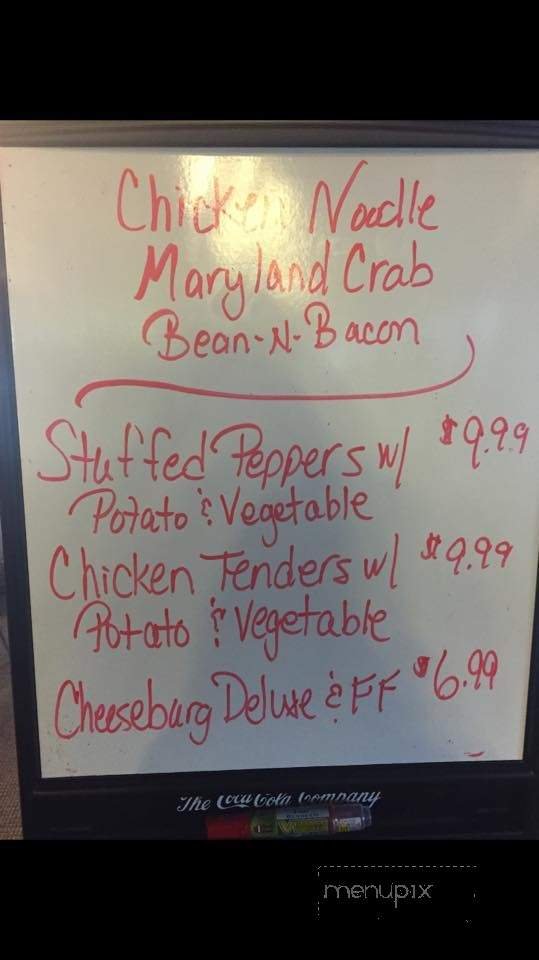 Chicken Noodle
Maryland Crab
Bean-N-Bacon
Stuffed Peppers w/ $9.99
Potato & Vegetable
Chicken Tenders w/ $9.99
Potato & Vegetable
Cheeseburg Deluxe & FF $6.99
The Coca-Cola Company
menupix